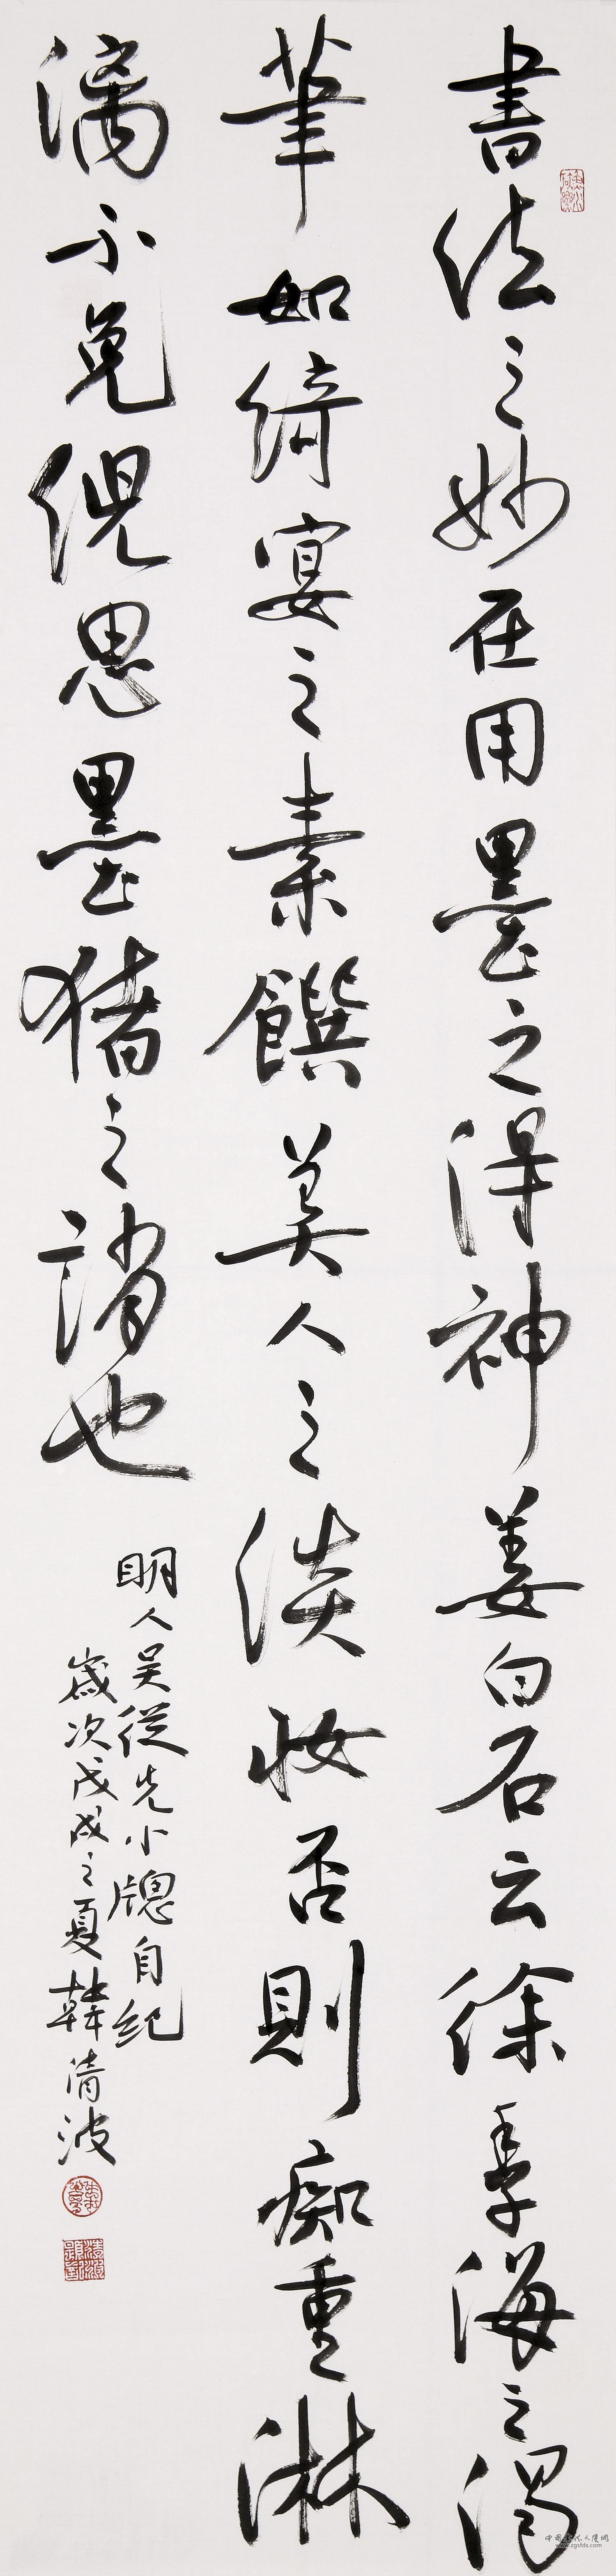 書法之妙在用墨之得神姜白石云徐季海之渴
筆如綺宴之素饌美人之淡妆否則痴重淋
漓不免倪思墨猪之誚也
明人吴從先小牕自紀
歲次戊戌之夏韓清波
www.zgsfds.com